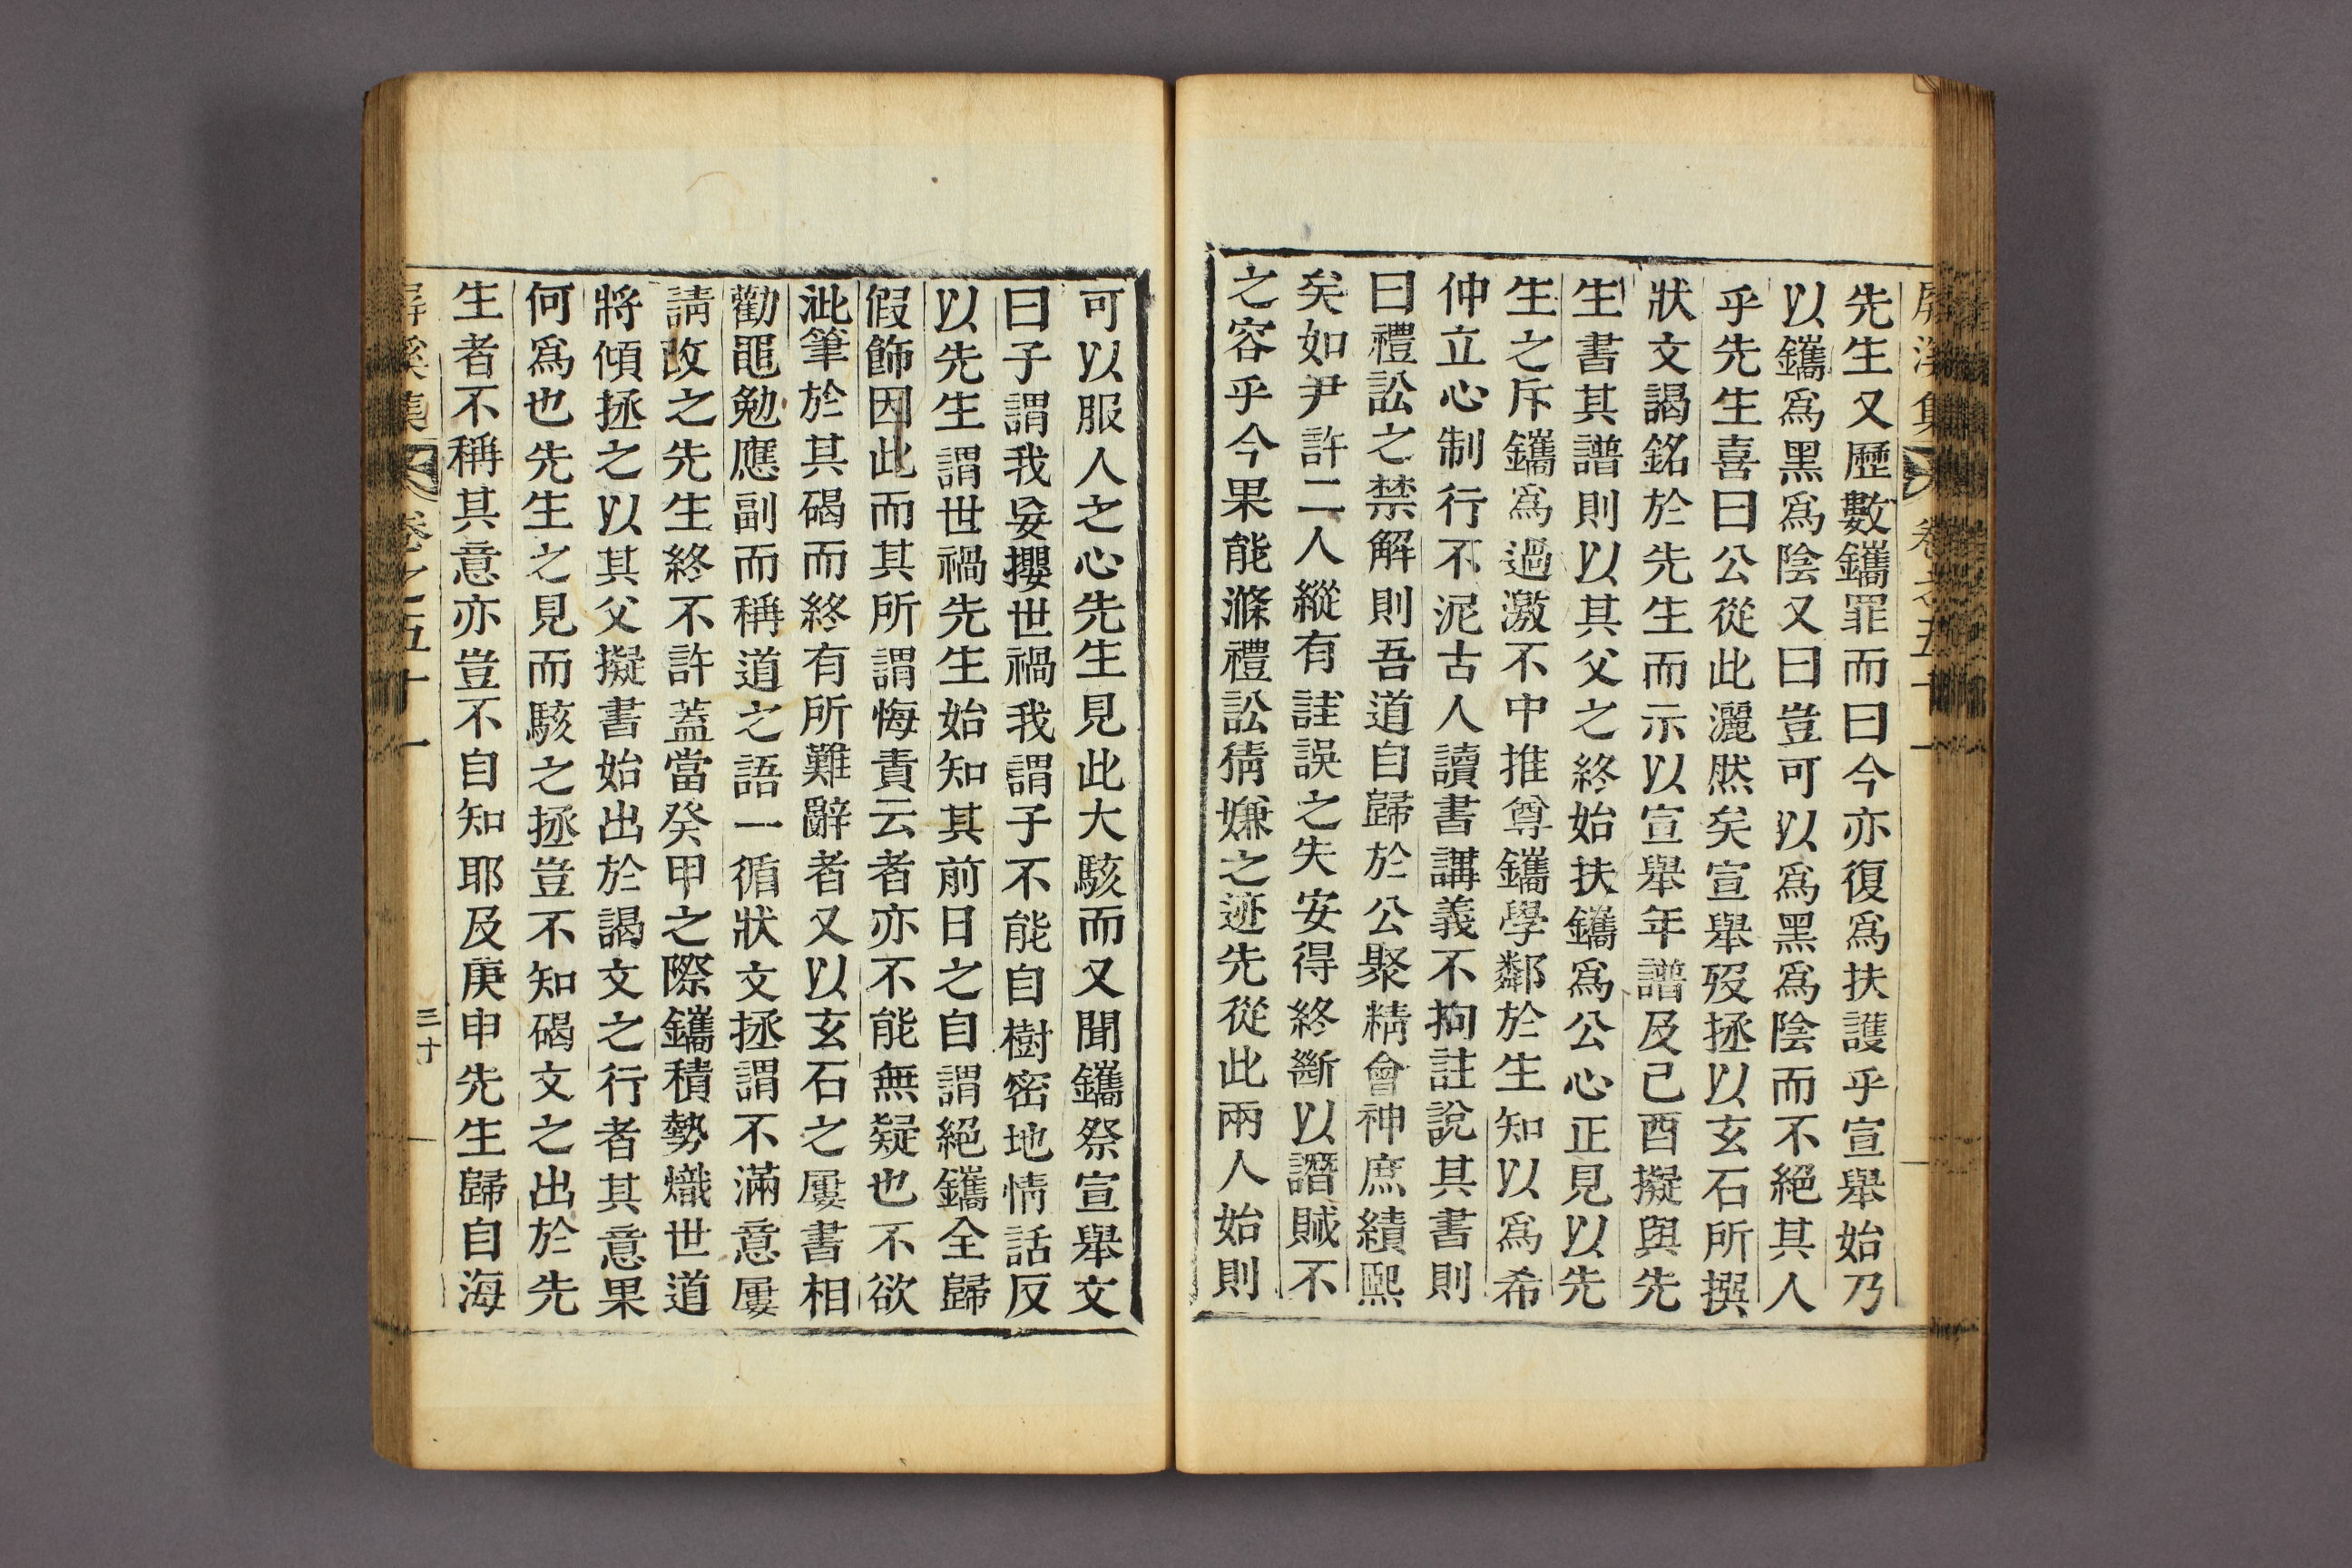 先生又歷數鑴罪而曰今亦復爲扶護乎宣舉始乃
以鑴爲黑爲陰又曰豈可以爲黑爲陰而不絕其人
乎先生喜曰公從此灑然矣宣舉歿拯以玄石所撰
狀文謁銘於先生而示以宣舉年譜及己酉擬與先
生書其譜則以其父之終始扶鑴爲公心正見以先
生之斥鑴爲過激不中推尊鑴學鄰於生知以爲希
仲立心制行不泥古人讀書講義不拘註說其書則
曰禮訟之禁解則吾道自歸於公聚精會神庶績熙
矣如尹許二人縱有詿誤之失安得終斷以讒賊不
之容乎今果能滌禮訟猜嫌之迹先從此兩人始則
可以服人之心先生見此大駭而又聞鑴祭宣舉文
曰子謂我妄攖世禍我謂子不能自樹密地情話反
以先生謂世禍先生始知其前日之自謂絕鑴全歸
假飾因此而其所謂悔責云者亦不能無疑也不欲
泚筆於其碣而終有所難辭者又以玄石之屢書相
勸黽勉應副而稱道之語一循狀文拯謂不滿意屢
請改之先生終不許蓋當癸甲之際鑴積勢熾世道
將傾拯之以其父擬書始出於謁文之行者其意果
何爲也先生之見而駭之拯豈不知碣文之出於先
生者不稱其意亦豈不自知耶及庚申先生歸自海
屛溪集 卷之五十一 三十